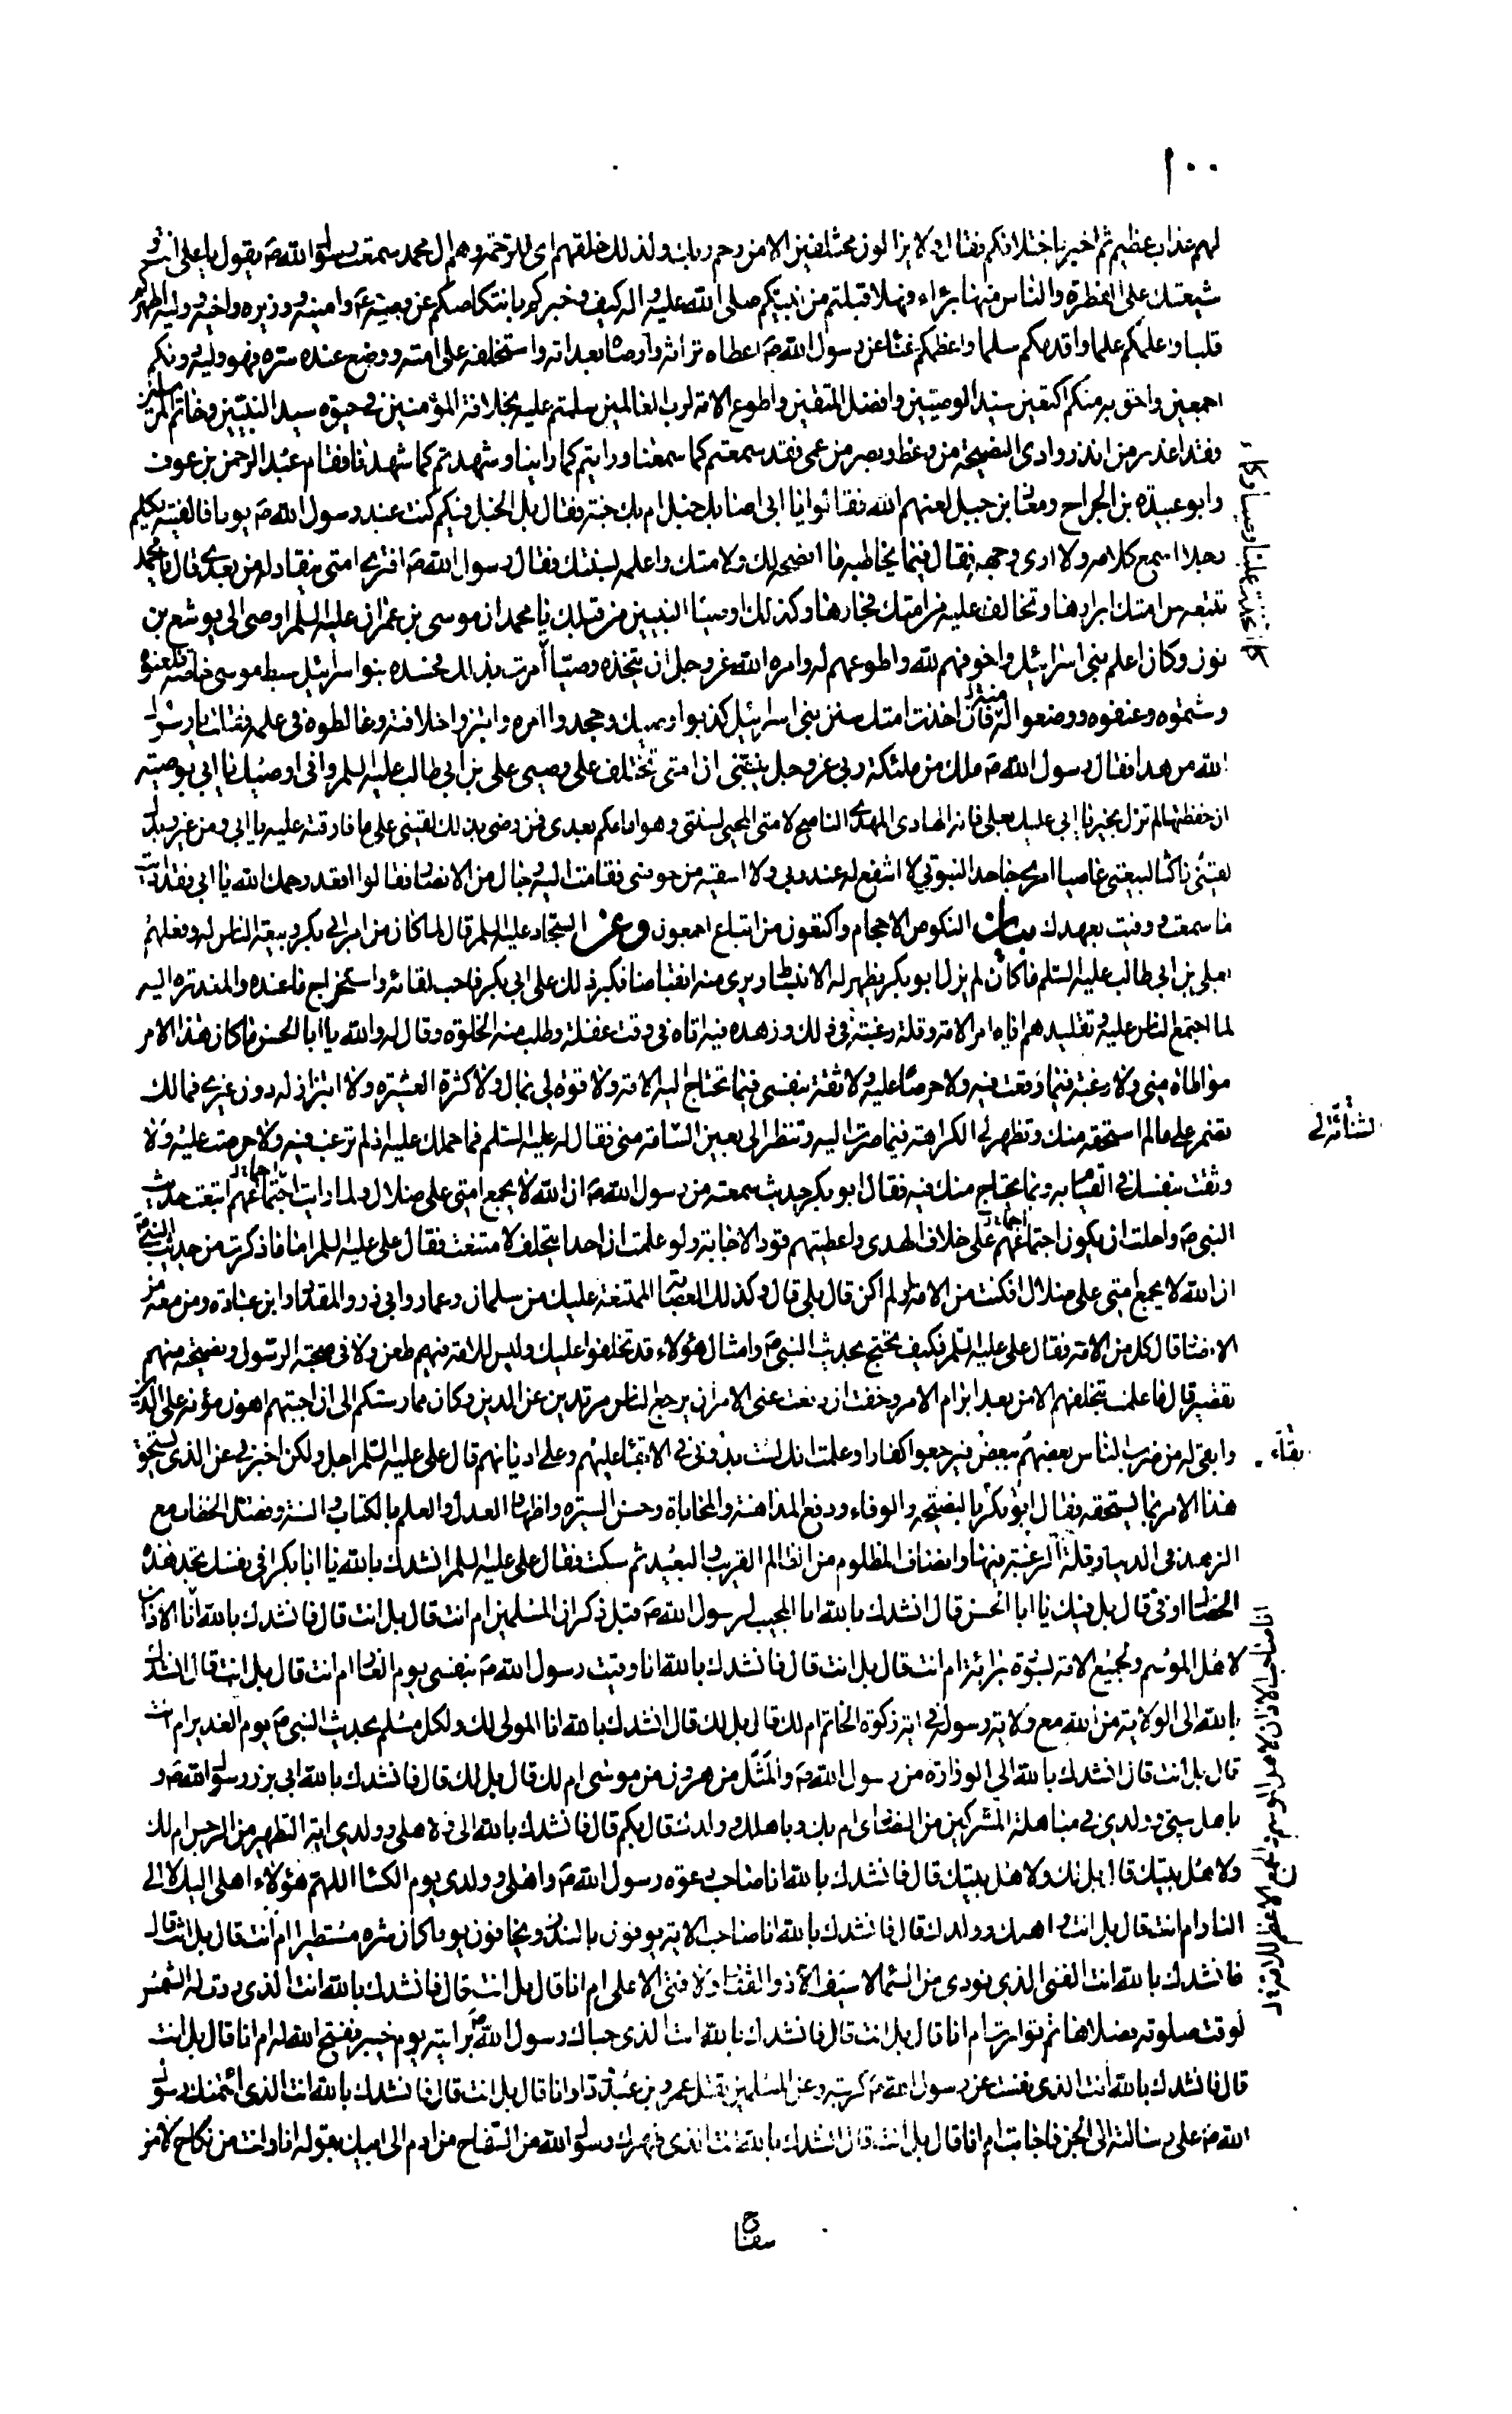 ١٠٠
لهم عذاب عظيم ثم اخبر باختلافكم فقال ولا يزالون مختلفين الا من رحم ربك ولذلك خلقهم اى للرحمة وهم ال محمد سمعت رسول الله صَ يقول يا على انت و
شيعتك على الفطرة والناس منها برٓاء فهلا قبلتم من نبيكم صلى الله عليه واله كيف وخبركم بانتكاصكم عن وصيه عَ وامينه ووزيره واخيه ووليه اطهركم
قلبا واعلمكم علما واقدمكم سلما واعظمكم غنٓاء عن رسول الله صَ اعطاه تراثه واوصاه بعداته واستخلفه على امته ووضع عنده سره فهو وليه دونكم
اجمعين واحق به منكم اكتعين سيد الوصيين وافضل المتقين واطوع الامة لرب العالمين سلمتم عليه بخلافة المؤمنين فى حيوة سيد النبيين وخاتم المرسلين
فقد اعذر من انذر وادى النصيحة من وعظ وبصر من عمى فقد سمعتم كما سمعنا ورايتم كما راينا وشهدتم كما شهدنا فقام عبد الرحمن بن عوف
وابو عبيدة بن الجراح ومعاذ بن جبل لعنهم الله فقالوا يا ابى اصابك خبل ام بك جنة فقال بل الخبل فيكم كنت عند رسول الله صَ يوما فالفيته يكلم
رجلا اسمع كلامه ولا ارى وجهه فقال فيما يخاطبه ما انصحه لك ولامتك واعلمه بسنتك فقال رسول الله صَ افترى امتى تنقاد له من بعدى قال يا محمد
تتبعه من امتك ابرارها وتخالف عليه من امتك فجارها وكذلك اوصيٓا النبيين من قبلك يا محمد ان موسى بن عمران عليه السلم اوصى الى يوشع بن
نون وكان اعلم بنى اسرائيل واخوفهم لله واطوعهم له وامره الله عز وجل ان يتخذه وصيا امرت بذلك فحسده بنوا اسرائيل سبط موسى خاصة فلعنوه
وشتموه وعنفوه ووضعوا منه فان اخذت امتك سنن بنى اسرائيل كذبوا وصيك وجحدوا امره وابتزوا خلافته وغالطوه فى علمه فقلت يا رسول
الله من هذا فقال رسول الله صَ ملك من ملئكة ربى عز وجل ينبئنى ان امتى تختلف على وصيى على بن ابى طالب عليه السلم وانى اوصيك يا ابى بوصية
ان حفظتها لم تزل بخير يا ابى عليك بعلى فانه الهادى المهدى الناصح لامتى المحيى لسنتى وهو امامكم بعدى فمن رضى بذلك لقينى على ما فارقته عليه يا ابى ومن غير وبدل
لقينى ناكثا لبيعتى عاصيا امرى جاحدا لنبوتى لا اشفع له عند ربى ولا اسقيه من حوضى فقامت اليه رجال من الانصار فقالوا اقعد رحمك الله يا ابى فقد اديت
ما سمعت ووفيت بعهدك بيان النكوص الاحجام واكتعون من اتباع اجمعون وعن السجاد عليه السلم قال لما كان من امر ابى بكر وبيعة الناس له وفعلهم
بعلى بن ابى طالب عليه السلم ما كان لم يزل ابو بكر يظهر له الانبساط ويرى منه انقباضا فكبر ذلك على ابى بكر فاحب لقائه واستخراج ما عنده والمعذرة اليه
لما اجتمع الناس عليه وتقليدهم اياه امر الامة وقلة رغبته فى ذلك وزهده فيه اتاه فى وقت غفلة وطلب منه الخلوة وقال له والله يا ابا الحسن ما كان هذا الامر
مواطاة منى ولا رغبة فيما وقعت فيه ولا حرصا عليه ولا ثقة بنفسى فيما تحتاج اليه الامة ولا قوة لى بمال ولا كثرة العشيرة ولا ابتزاز له دون غيرى فمالك
تضمر على ما لم استحقه منك وتظهر لى الكراهة فيما صرت اليه وتنظر الى بعين السٓامة منى فقال له عليه السلم فما حملك عليه اذ لم ترغب فيه ولا حرصت عليه ولا
وثقت بنفسك فى القيام به وبما يحتاج منك فيه فقال ابو بكر حديث سمعته من رسول الله صَ ان الله لا يجمع امتى على ضلال ولما رايت اجتماعهم اتبعت حديث
النبى صَ واحلت ان يكون اجتماعهم على خلاف الهدى واعطيتهم قود الاجابة ولو علمت ان احدا يتخلف لامتنعت فقال على عليه السلم اما ما ذكرت من حديث النبى صَ
ان الله لا يجمع امتى على ضلال افكنت من الامة او لم اكن قال بلى قال وكذلك العصابة الممتنعة عليك من سلمان وعمار وابى ذر والمقداد وابن عبادة ومن معه من
الانصار قال كل من الامة فقال على عليه السلم فكيف تحتج بحديث النبى صَ وامثال هؤلاء قد تخلفوا عليك وليس للامة فيهم طعن ولا فى صحبة الرسول ونصيحته منهم
تقصير قال ما علمت بتخلفهم الا من بعد ابرام الامر وخفت ان دفعت عنى الامر ان يرجع الناس مرتدين عن الدين وكان ممارستكم الى ان اجبتهم اهون مؤنة على الدين
وابقى له من ضرب الناس بعضهم ببعض فيرجعوا كفارا وعلمت انك لست بدونى فى الابقاء عليهم وعلى اديانهم قال على عليه السلم اجل ولكن اخبرنى عن الذى يستحق
هذا الامر بما يستحقه فقال ابو بكر بالنصيحة والوفاء ودفع المداهنة والمحاباة وحسن السيرة واظهار العدل والعلم بالكتاب والسنة وفصل الخطاب مع
الزهد فى الدنيا وقلة الرغبة فيها وانصاف المظلوم من الظالم القريب والبعيد ثم سكت فقال على عليه السلم انشدك بالله يا ابا بكر افى نفسك تجد هذه
الخصال او فى قال بل فيك يا ابا الحسن قال انشدك بالله انا المجيب لرسول الله صَ قبل ذكران المسلمين ام انت قال بل انت قال فانشدك بالله انا الاذان
لاهل الموسم ولجميع الامة بسورة براءة ام انت قال بل انت قال فانشدك بالله انا وقيت رسول الله صَ بنفسى يوم الغار ام انت قال بل انت قال انشدك
بالله الى الولاية من الله مع ولاية رسوله فى اية زكوة الخاتم ام لك قال بل لك قال انشدك بالله انا المولى لك ولكل مسلم بحديث النبى صَ يوم الغدير ام انت
قال بل انت قال انشدك بالله الى الوزارة من رسول الله صَ والمثل من هرون من موسى ام لك قال بل لك قال فانشدك بالله ابى برز رسول الله صَ و
باهل بيتى وولدى فى مباهلة المشركين من النصارى ام بك وباهلك وولدك قال بكم قال فانشدك بالله الى ولاهلى وولدى اية التطهير من الرجس ام لك
ولاهل بيتك قال بل لك ولاهل بيتك قال فانشدك بالله انا صاحب دعوة رسول الله صَ واهلى وولدى يوم الكسٓا اللهم هؤلاء اهلى اليك لا الى
النار ام انت قال بل انت واهلك وولدك قال فانشدك بالله انا صاحب الاية يوفون بالنذر ويخافون يوما كان شره مستطيرا ام انت قال بل انت قال
فانشدك بالله انت الفتى الذى نودى من السمٓا لا سيف الا ذو الفقار ولا فتى الا على ام انا قال بل انت قال فانشدك بالله انت الذى ردت له الشمس
لوقت صلوته فصلاها ثم توارت ام انا قال بل انت قال فانشدك بالله انت الذى حباك رسول الله صَ برايته يوم خيبر ففتح الله له ام انا قال بل انت
قال فانشدك بالله انت الذى نفست عن رسول الله صَ كربته وعن المسلمين بقتل عمرو بن عبد ود او انا قال بل انت قال فانشدك بالله انت الذى ائتمنك رسول
الله صَ على رسالته الى الجن فاجابت ام انا قال بل انت قال انشدك بالله انت الذى طهرك رسول الله من السفاح من ادم الى ابيك بقوله انا وانت من نكاح لا من
سفاح
بقٓاء